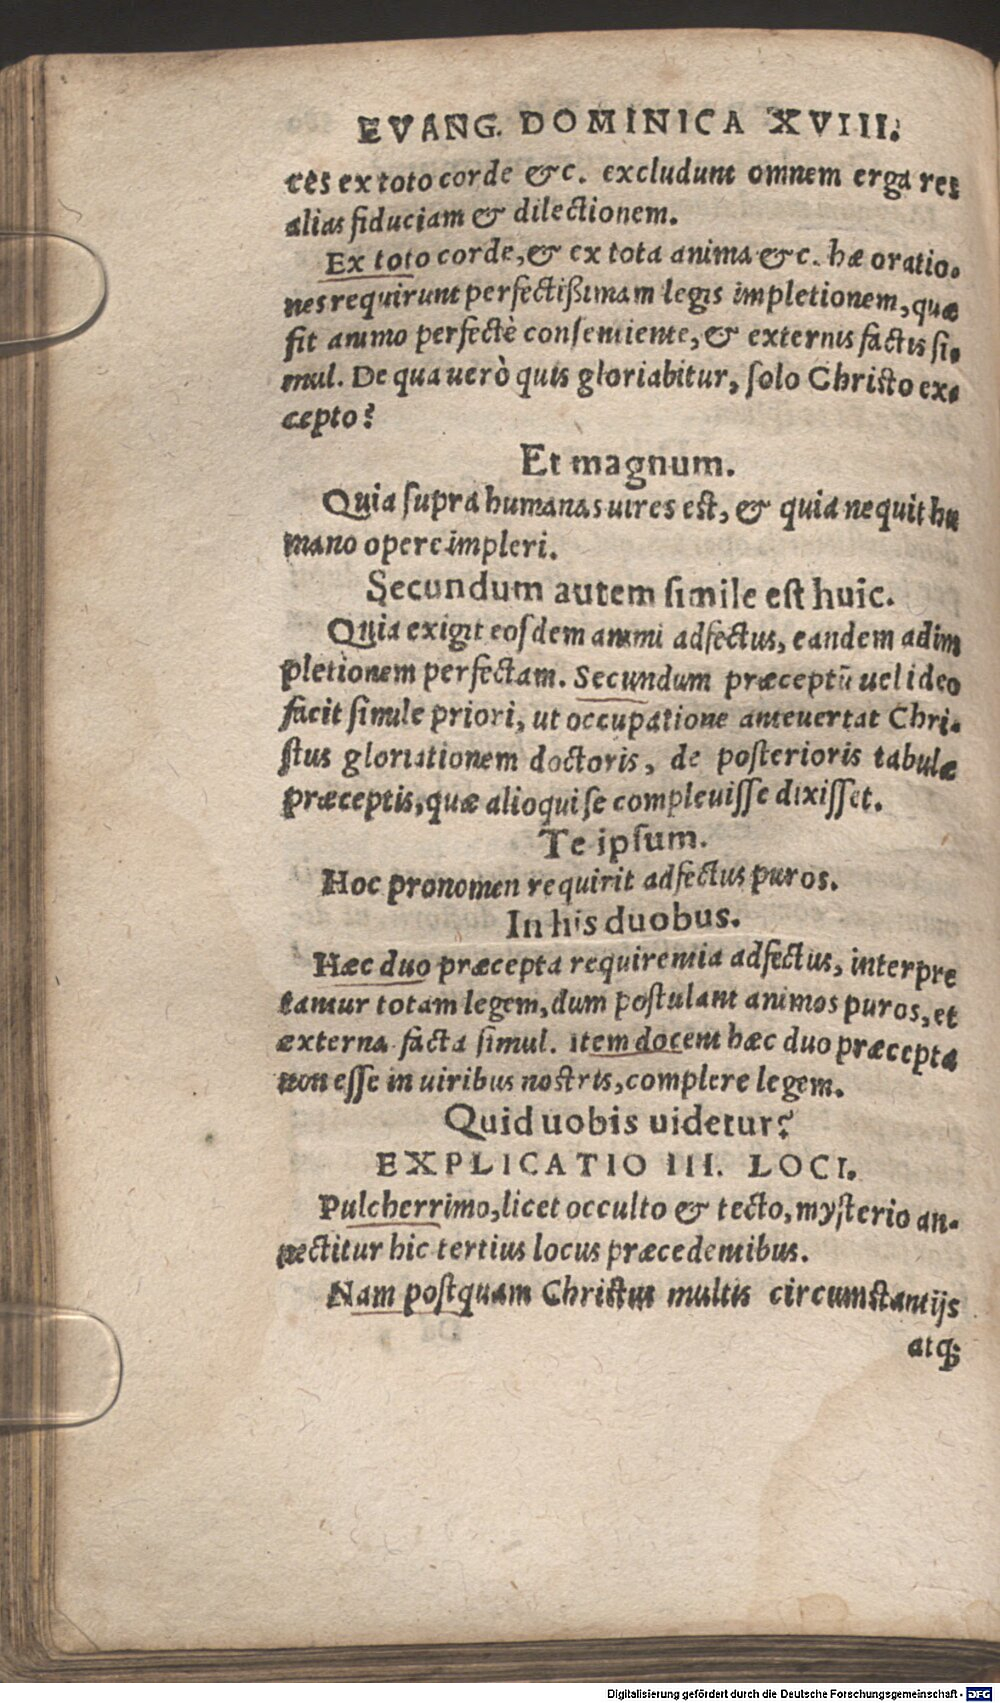 EVANG. DOMINICA XVIII.
tes ex toto corde &c. excludunt omnem erga res
alias fiduciam & dilectionem.
Ex toto corde, & ex tota anima &c. hæ oratio-
nes requirunt perfectißimam legis impletionem, quæ
fit animo perfectè consentiente, & externis factis si-
mul. De qua uerò quis gloriabitur, solo Christo ex-
cepto?
Et magnum.
Quia supra humanas uires est, & quia nequit hu
mano opere impleri.
Secundum autem simile est huic.
Quia exigit eosdem animi adfectus, eandem adim
pletionem perfectam. Secundum præceptū uel ideo
facit simile priori, ut occupatione anteuertat Chri-
stus gloriationem doctoris, de posterioris tabulæ
præceptis, quæ alioqui se compleuisse dixisset.
Te ipsum.
Hoc pronomen requirit adfectus puros.
In his duobus.
Hæc duo præcepta requirentia adfectus, interpre
tantur totam legem, dum postulant animos puros, et
externa facta simul. item docent hæc duo præcepta
non esse in uiribus nostris, complere legem.
Quid uobis uidetur?
EXPLICATIO III. LOCI.
Pulcherrimo, licet occulto & tecto, mysterio an-
nectitur hic tertius locus præcedentibus.
Nam postquam Christus multis circumstantijs
atq;
Digitalisierung gefördert durch die Deutsche Forschungsgemeinschaft - DFG